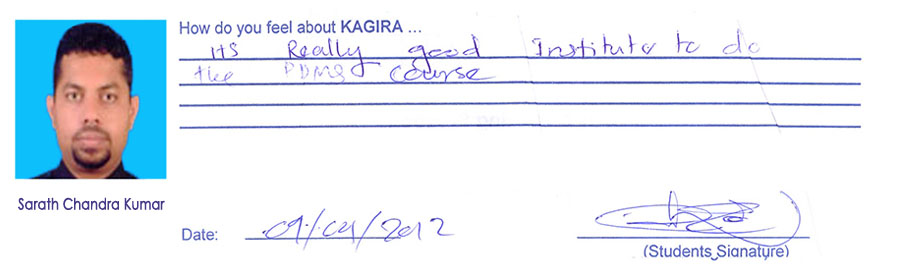 How do you feel about KAGIRA ...
its Really good Institute to do
the PDMS course
Sarath Chandra Kumar
Date: 09/04/2012
(Students Signature)